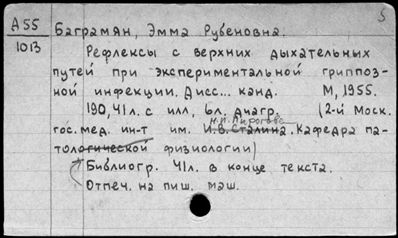 5
А55
1013
Баграмян, Эмма Рубеновна.
Рефлексы с верхних дыхательных
путей при экспериментальной гриппоз-
ной инфекции. Дисс... канд. М, 1955.
190, 41л. с илл, 6л. диагр. (2-й Моск.
Н.И. Пирогова
гос. мед. ин-т им. И.В. Сталина. Кафедра па-
тологической физиологии)
Библиогр. 41л. в конце текста.
Отпеч. на пиш. маш.